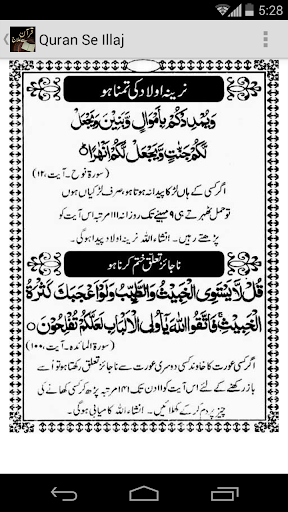 5:28
Quran Se Illaj
نرینہ اولاد کی تمنا ہو
وَيُمْدِدْكُمْ بِأَمْوَالٍ وَّبَنِيْنَ وَيَجْعَلْ
لَّكُمْ جَنّٰتٍ وَّيَجْعَلْ لَّكُمْ اَنْهٰرًا ۝
(سورۃ نوح۔آیت،۱۲)
اگر کسی کے ہاں لڑکا پیدا نہ ہوتا ہو، صرف لڑکیاں ہوں
تو حمل ٹھہرتے ہی ۹ مہینے تک روزانہ ۱۱۱ مرتبہ اس آیت کو
پڑھتے رہیں۔! انشاءاللہ نرینہ اولاد پیدا ہوگی۔
ناجائز تعلق ختم کرنا ہو
قُلْ لَّا يَسْتَوِى الْخَبِيْثُ وَالطَّيِّبُ وَلَوْ اَعْجَبَكَ كَثْرَةُ
الْخَبِيْثِ ۚ فَاتَّقُوا اللّٰهَ يٰٓاُولِى الْاَلْبَابِ لَعَلَّكُمْ تُفْلِحُوْنَ ۝
(سورۃ المائدہ۔آیت،۱۰۰)
اگر کسی عورت کا خاوند کسی دوسری عورت سے ناجائز تعلق رکھتا ہو تو اسے
باز رکھنے کے لئے اس آیت کو ۱۱ دن تک ۱۴۱ مرتبہ پڑھ کر کسی کھانے کی
چیز پر دم کر کے کھلائیں۔! انشاءاللہ کامیابی ہوگی۔